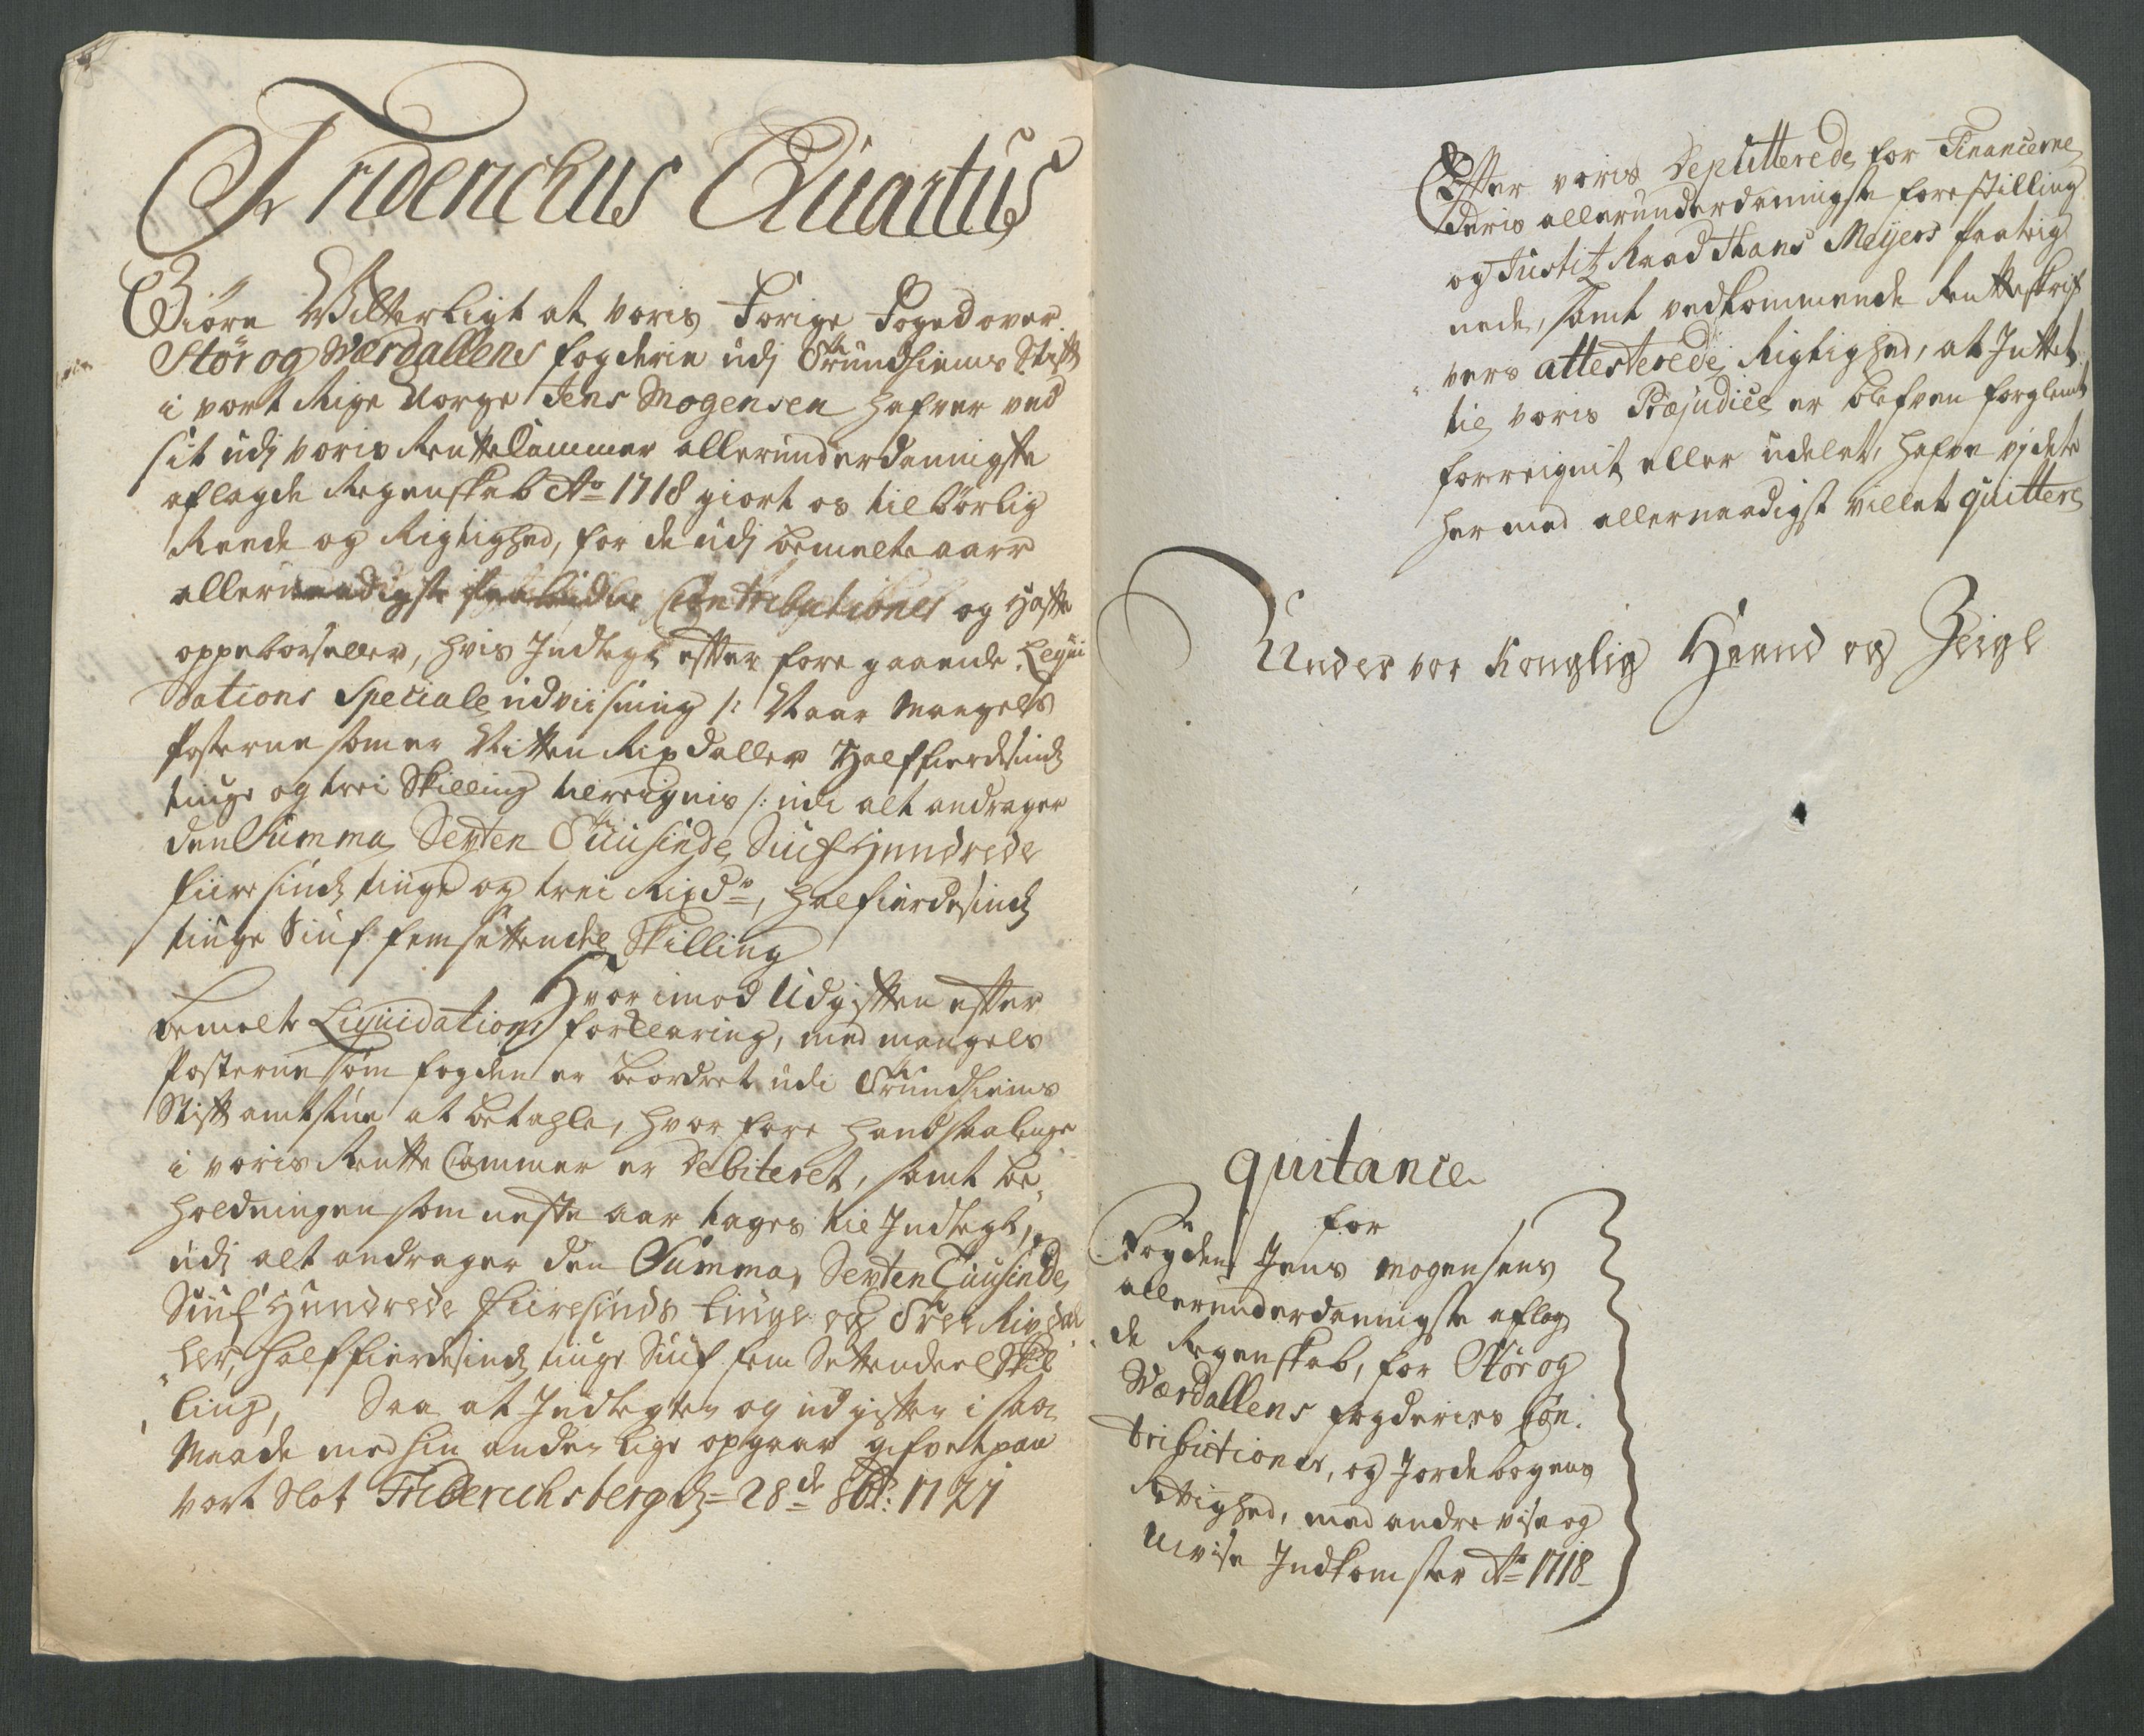 Fridericus Quartus
Giöre Witterligt at voris Forige Foged over
Stör og Værdallens fogderie udj Trundhiems Stift
i vort Rige Norge Jens Mogensen hafver ved
sit udj voris RentteCammer allerunderdannigste
aflagde Regenskab Ao 1718 giort os tilbörlig
Reede og Rigtighed, for de udj bemelte aar
allernaadigste paabudne Contributioner og Hafte
oppebörseller, hvis Indtegt efter foregaaende Liqui
dations Speciale udviisning /: Naar Mangels
Posterne som er Ritten Rixdaller Halffierdesinds
tiuge og trei Skilling tilreignis /: udi alt andrager
den Summa Sexten Tuusinde, Siuf Hundrede
fiiresinds tiuge og trei Rixdr, halfierdesinds
tiuge Siuf femsettendel Skilling
Hvorimod Udgiften efter
bemelte Liquidations forklaring, med mangels
Posterne som fogden er beordret udi Trundhiems
Stiftamtstue at betahle, hvorfore hand saalenge
i voris RentteCammer er Debiteret, samt be,,
holdningen som neste aar tages til Indtegt,
udj alt andrager den Summa, Sexten Tuusinde,
Siuf Hundrede fiiresinds tiuge og Trei Rixdal
ler, halffierdesinds tiuge Siuf fem Settendeel Skil
ling, Saa at Indtegten og udgiften i saa
Maade med hin anden lige opgaar gifvet paa
vort Slot Friderichsberg dn 28de 8br: 1721
Efter voris Deputterede for Financerne
deris allerunderdannigste forestilling
og Justitz Raad Hans Meyers paateig
nede, samt vedkommende Rentteskrif
vers attesterede Rigtighed, at Inttet
til voris Præjudice er blefven forglemt
forreignit eller udelat, hafve vj dette
hermed allernaadigst villet quittere
Under vor Konglig Haand og Zeigl
quitance
for
Fogden Jens Mogensens
allerunderdannigste aflag
de Regenskab, for Stör og
Værdallens fogderies Con
tributioner, og Jordebogens
Rettighed, med andre visse og
Uvisse Indkomster Ao 1718